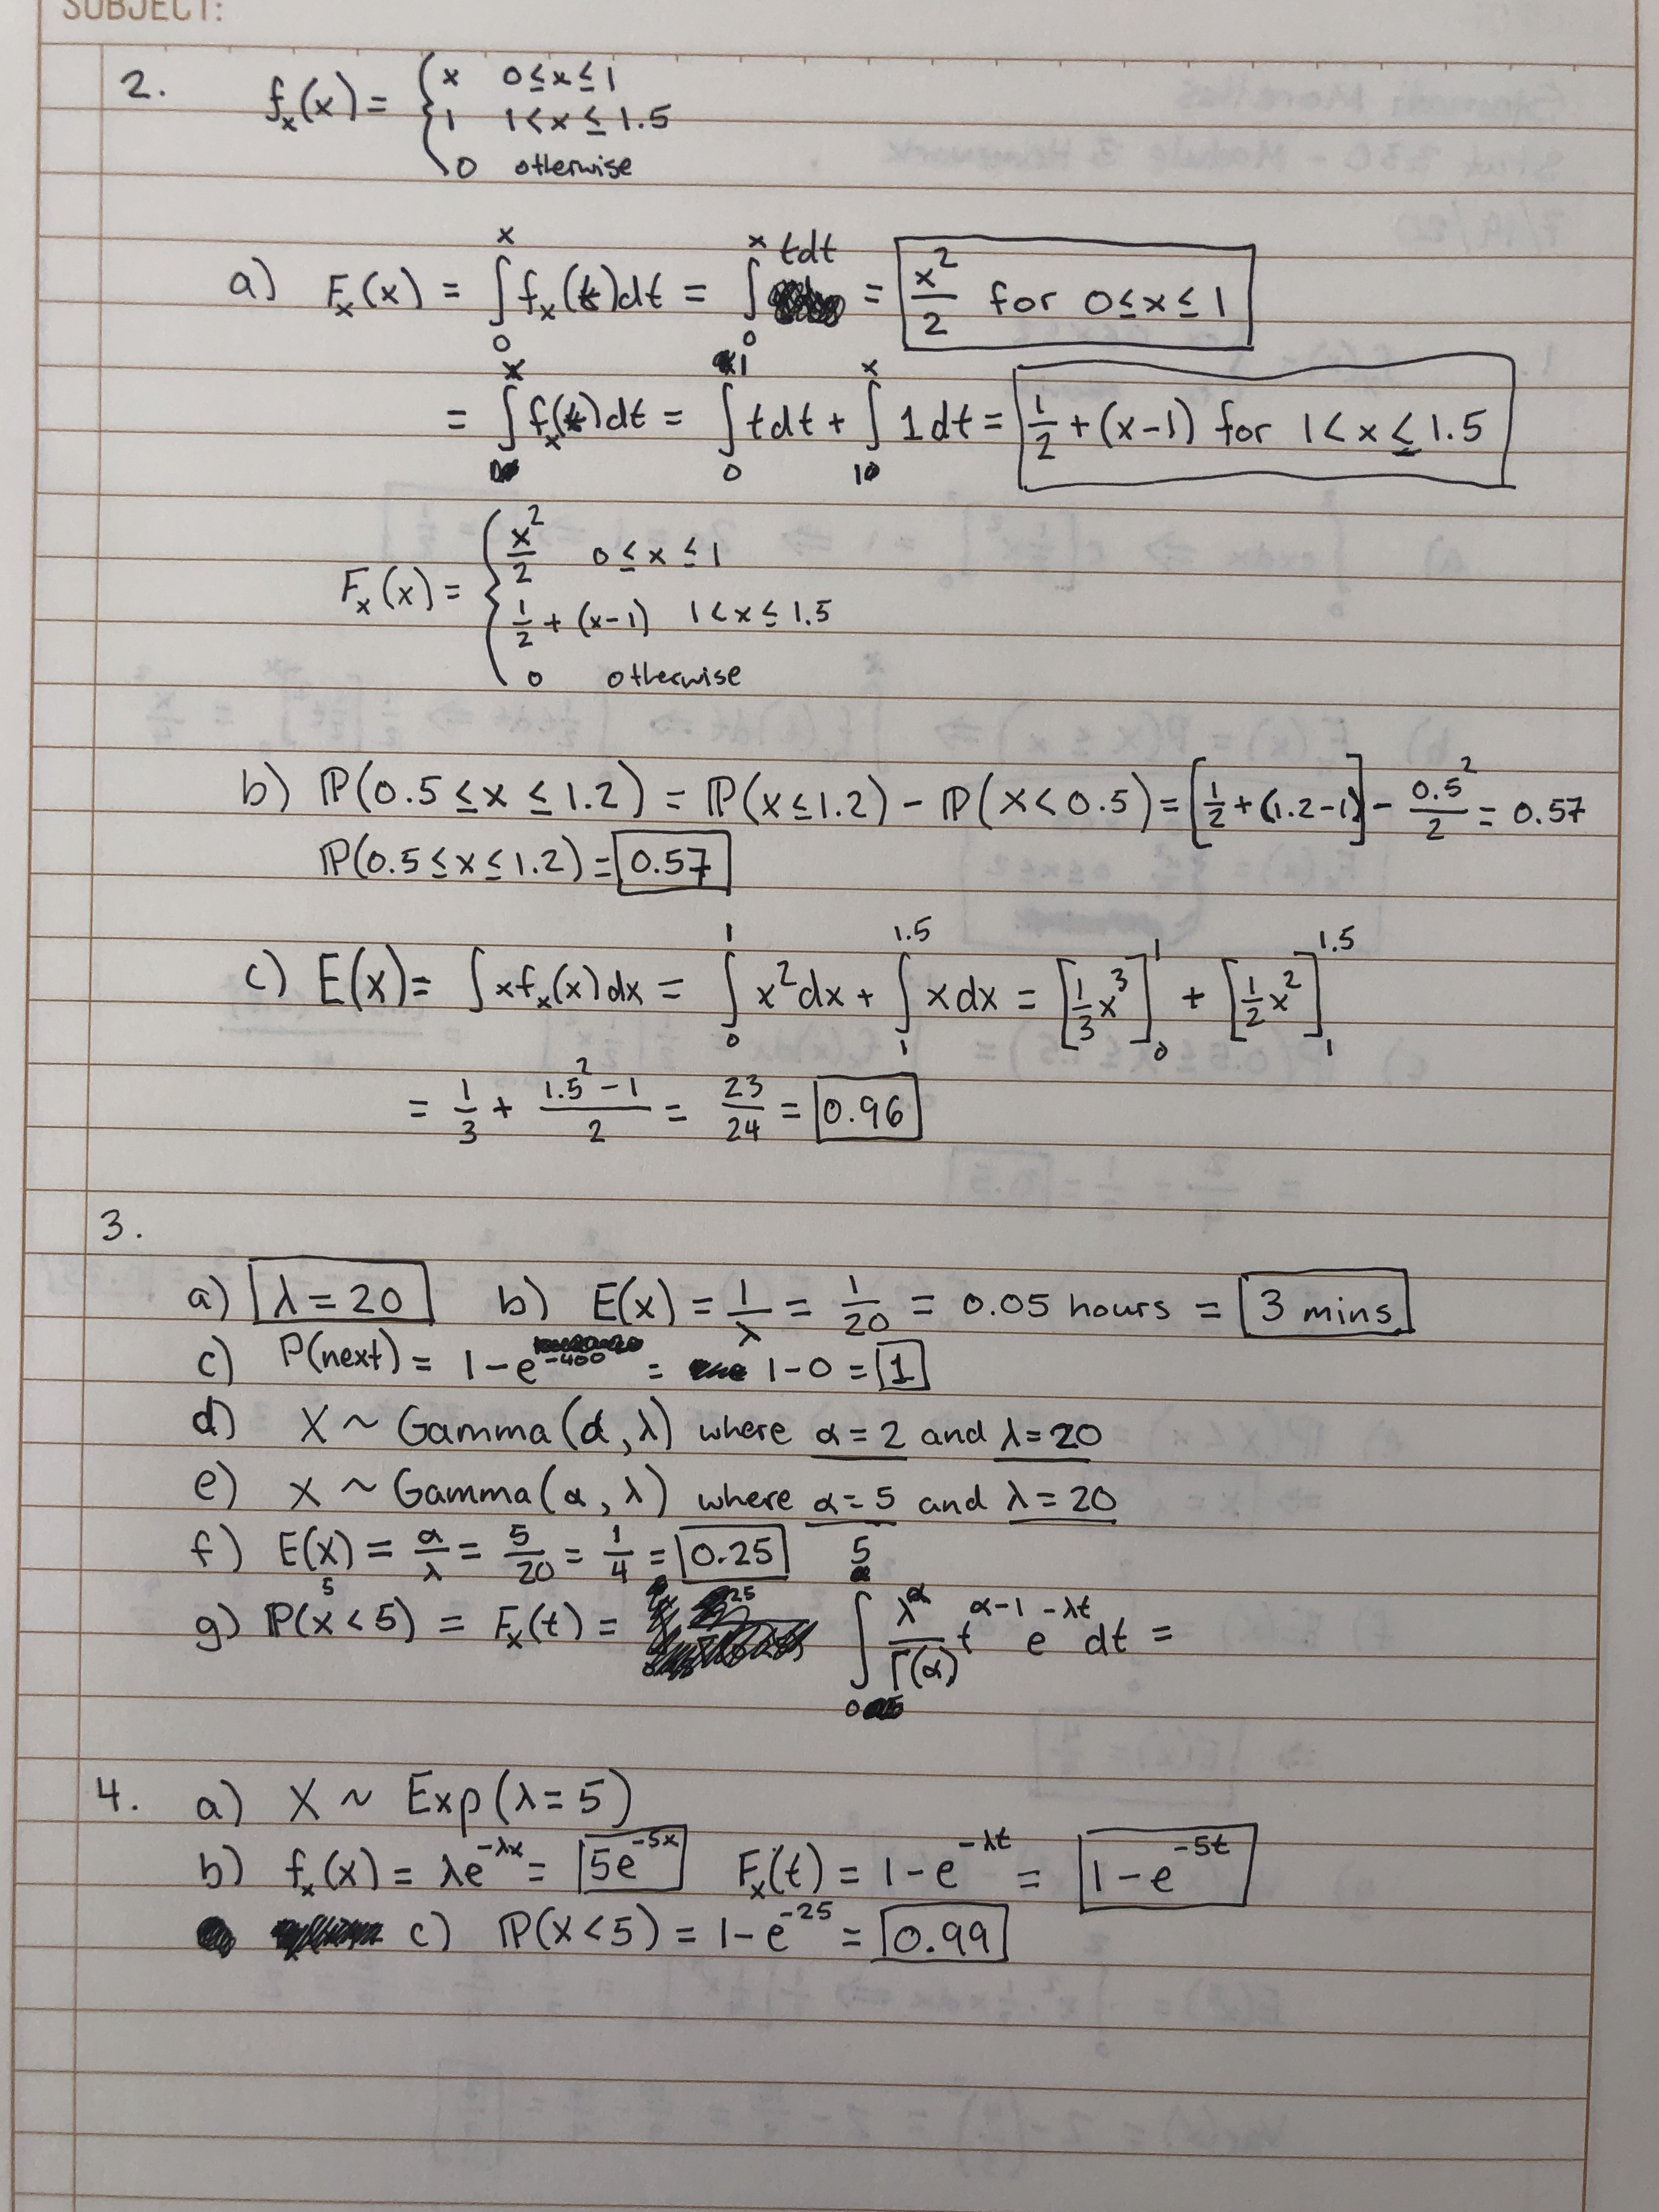 SUBJECT:
2. fₓ(x) = { x 0 ≤ x ≤ 1
1 1 < x ≤ 1.5
0 otherwise
a) Fₓ(x) = ∫₀ˣ fₓ(t)dt = ∫₀ˣ tdt = x²/2 for 0 ≤ x ≤ 1
= ∫ˣ fₓ(t)dt = ∫₀¹ tdt + ∫₁ˣ 1dt = 1/2 + (x-1) for 1 < x ≤ 1.5
Fₓ(x) = { x²/2 0 ≤ x ≤ 1
1/2 + (x-1) 1 < x ≤ 1.5
0 otherwise
b) ℙ(0.5 ≤ x ≤ 1.2) = ℙ(x ≤ 1.2) - ℙ(x < 0.5) = [1/2 + (1.2-1)] - 0.5²/2 = 0.57
ℙ(0.5 ≤ x ≤ 1.2) = 0.57
c) E(x) = ∫xfₓ(x)dx = ∫₀¹ x²dx + ∫₁^1.5 xdx = [1/3 x³]₀¹ + [1/2 x²]₁^1.5
= 1/3 + (1.5² - 1)/2 = 23/24 = 0.96
3.
a) λ = 20 b) E(x) = 1/λ = 1/20 = 0.05 hours = 3 mins
c) P(next) = 1 - e^-400 = 1 - 0 = 1
d) X ~ Gamma(α, λ) where α = 2 and λ = 20
e) X ~ Gamma(α, λ) where α = 5 and λ = 20
f) E(x) = α/λ = 5/20 = 1/4 = 0.25
g) ℙ(x₅ < 5) = Fₓ(t) = ∫₀⁵ λ^α/Γ(α) t^α-1 e^-λt dt =
4. a) X ~ Exp(λ = 5)
b) fₓ(x) = λe^-λx = 5e^-5x Fₓ(t) = 1 - e^-λt = 1 - e^-5t
c) ℙ(X < 5) = 1 - e^-25 = 0.99